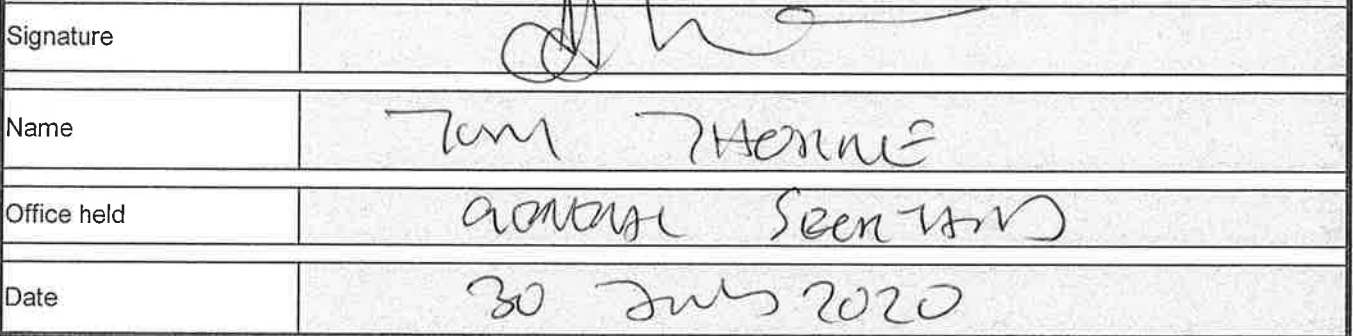 Signature
Name Tom THORNE
Office held GENERAL SECRETARY
Date 30 July 2020